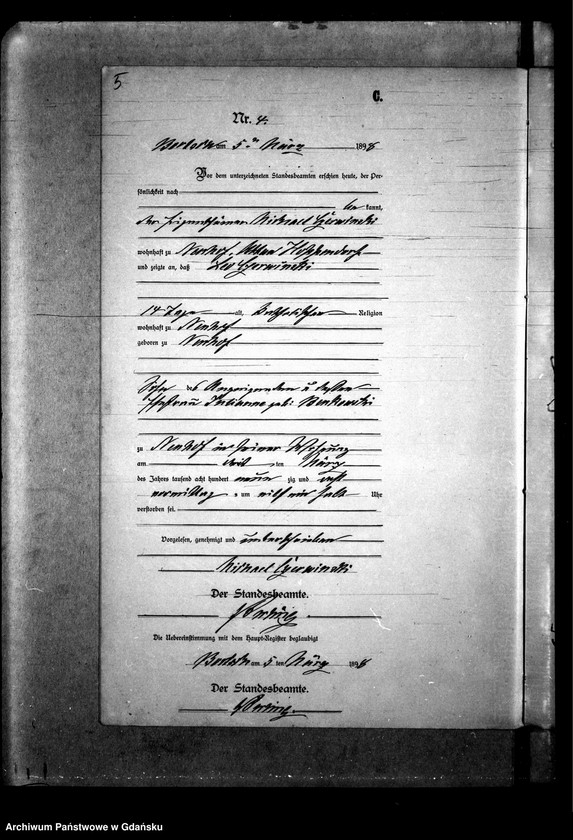 5
C.
Nr. 4.
am 5. ten März 1898
Vor dem unterzeichneten Standesbeamten erschien heute, der Per-
sönlichkeit nach
be kannt,
der Eigenthümer Michael Czerwinski
wohnhaft zu Neuhof,
und zeigte an, daß Leo Czerwinski
14 Tage alt, katholischer Religion
wohnhaft zu Neuhof
geboren zu Neuhof
Sohn des Anzeigenden u dessen
Ehefrau Julianna geb:
zu Neuhof in seiner Wohnung
am drei ten März
des Jahres tausend acht hundert neun zig und acht
vormittag s um elf ein halb Uhr
verstorben sei.
Vorgelesen, genehmigt und unterschrieben
Michael Czerwinski
Der Standesbeamte.
Die Uebereinstimmung mit dem Haupt-Register beglaubigt
am 5 ten März 1898
Der Standesbeamte.
Archiwum Państwowe w Gdańsku